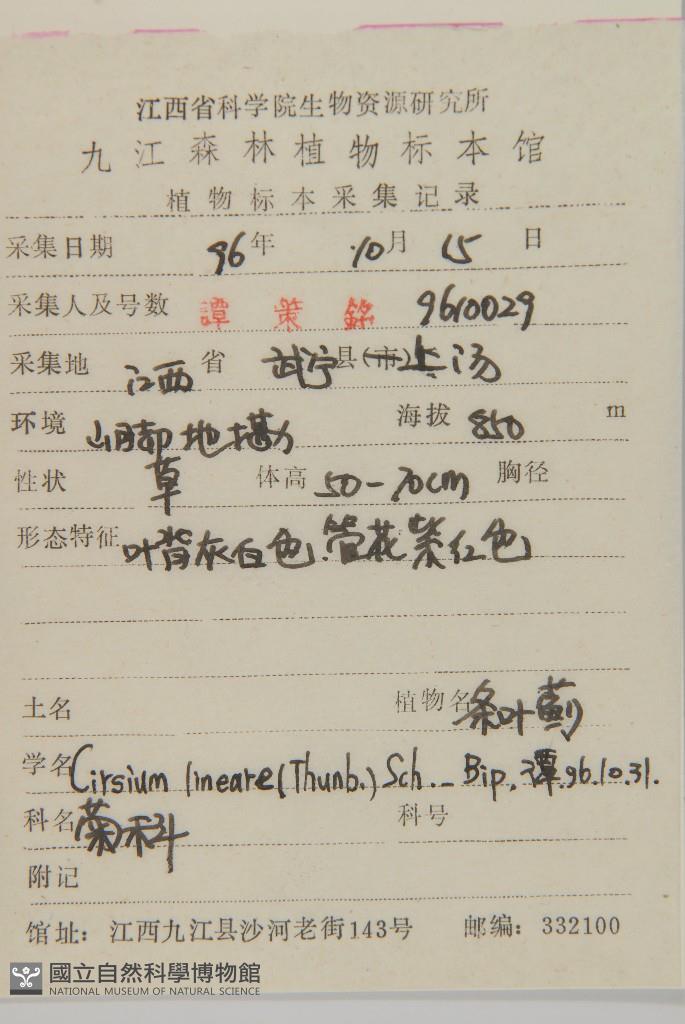 江西省科学院生物资源研究所
九江森林植物标本馆
植物标本采集记录
采集日期 96年 10月 15 日
采集人及号数 譚策銘 9610029
采集地 江西 省 武宁 县(市)上汤
环境 山脚地堪 海拔 850 m
性状 草 体高 50-70cm 胸径
形态特征 叶背灰白色.管花紫红色
土名 植物名 条叶蓟
学名 Cirsium lineare(Thunb.) Sch.-Bip. 谭96.10.31.
科名 菊科 科号
附记
馆址：江西九江县沙河老街143号 邮编：332100
國立自然科學博物館
NATIONAL MUSEUM OF NATURAL SCIENCE